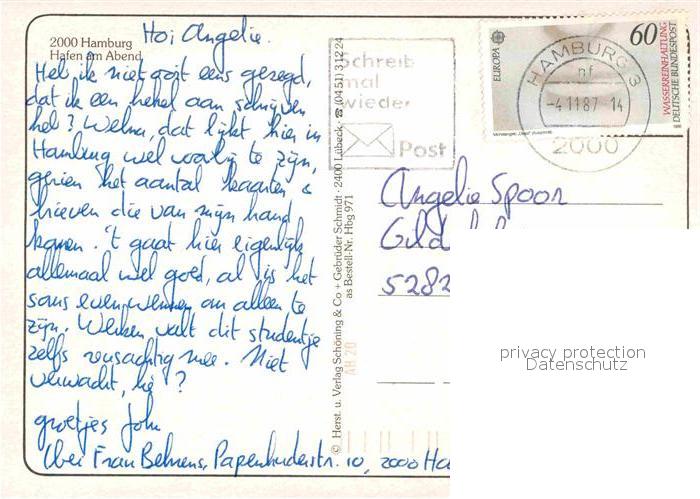 2000 Hamburg
Hafen am Abend
Hoi Angelie.
Heb ik niet ooit eens gezegd,
dat ik een hekel aan schrijven
heb? Welnu, dat lijkt hier in
Hamburg wel voorbij te zijn,
gezien het aantal kaarten &
brieven die van mijn hand
komen. 't gaat hier eigenlijk
allemaal wel goed, al is het
soms even wennen om alleen te
zijn. Werken valt dit studentje
zelfs reusachtig mee. Niet
verwacht, hè?
groetjes John
(bei Frau Behrens, Papenhuderstr. 10, 2000 Ha
© Herst. u. Verlag Schöning & Co + Gebrüder Schmidt · 2400 Lübeck · ☎ (0451) 31224
as Bestell-Nr. Hbg 971
AH 20
Schreib
mal
wieder
Post
EUROPA
60
WASSERREINHALTUNG
DEUTSCHE BUNDESPOST
HAMBURG 3
nf
-4.11.87-14
2000
Angelie Spoor
Gild
5282
privacy protection
Datenschutz